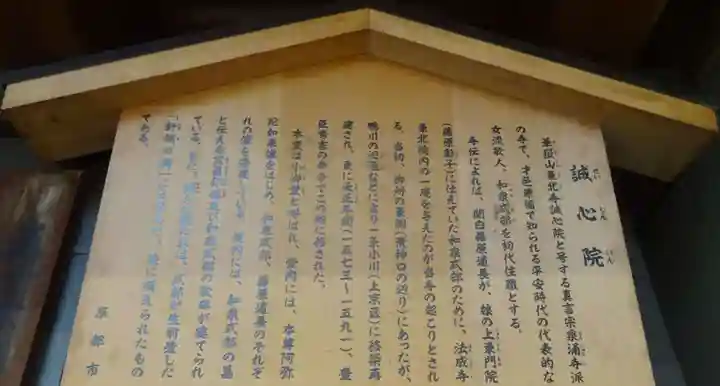 誠心院
せいしんいん
華嶽山東北寺誠心院と号する真言宗泉涌寺派
の寺で、才色兼備で知られる平安時代の代表的な
女流歌人、和泉式部を初代住職とする。
寺伝によれば、関白藤原道長が、娘の上東門院
(藤原彰子)に仕えていた和泉式部のために、法成寺
東北院内の一庵を与えたのが当寺の起こりとされ
る。当初、御所の東側(荒神口の辺り)にあったが、
鴨川の氾濫などにより一条小川(上京区)に移築再
建され、更に天正年間(一五七三~一五九一)、豊
臣秀吉の命令でこの地に移された。
本堂は小御堂と呼ばれ、堂内には、本尊阿弥
陀如来像をはじめ、和泉式部、藤原道長のそれぞ
れの像を安置している。境内には、和泉式部の墓
と伝える宝篋印塔及び和泉式部の歌碑が建てられ
ている。また、
式部が生前愛した
「軒端の梅」に
後に植えられたもの
である。
京都市